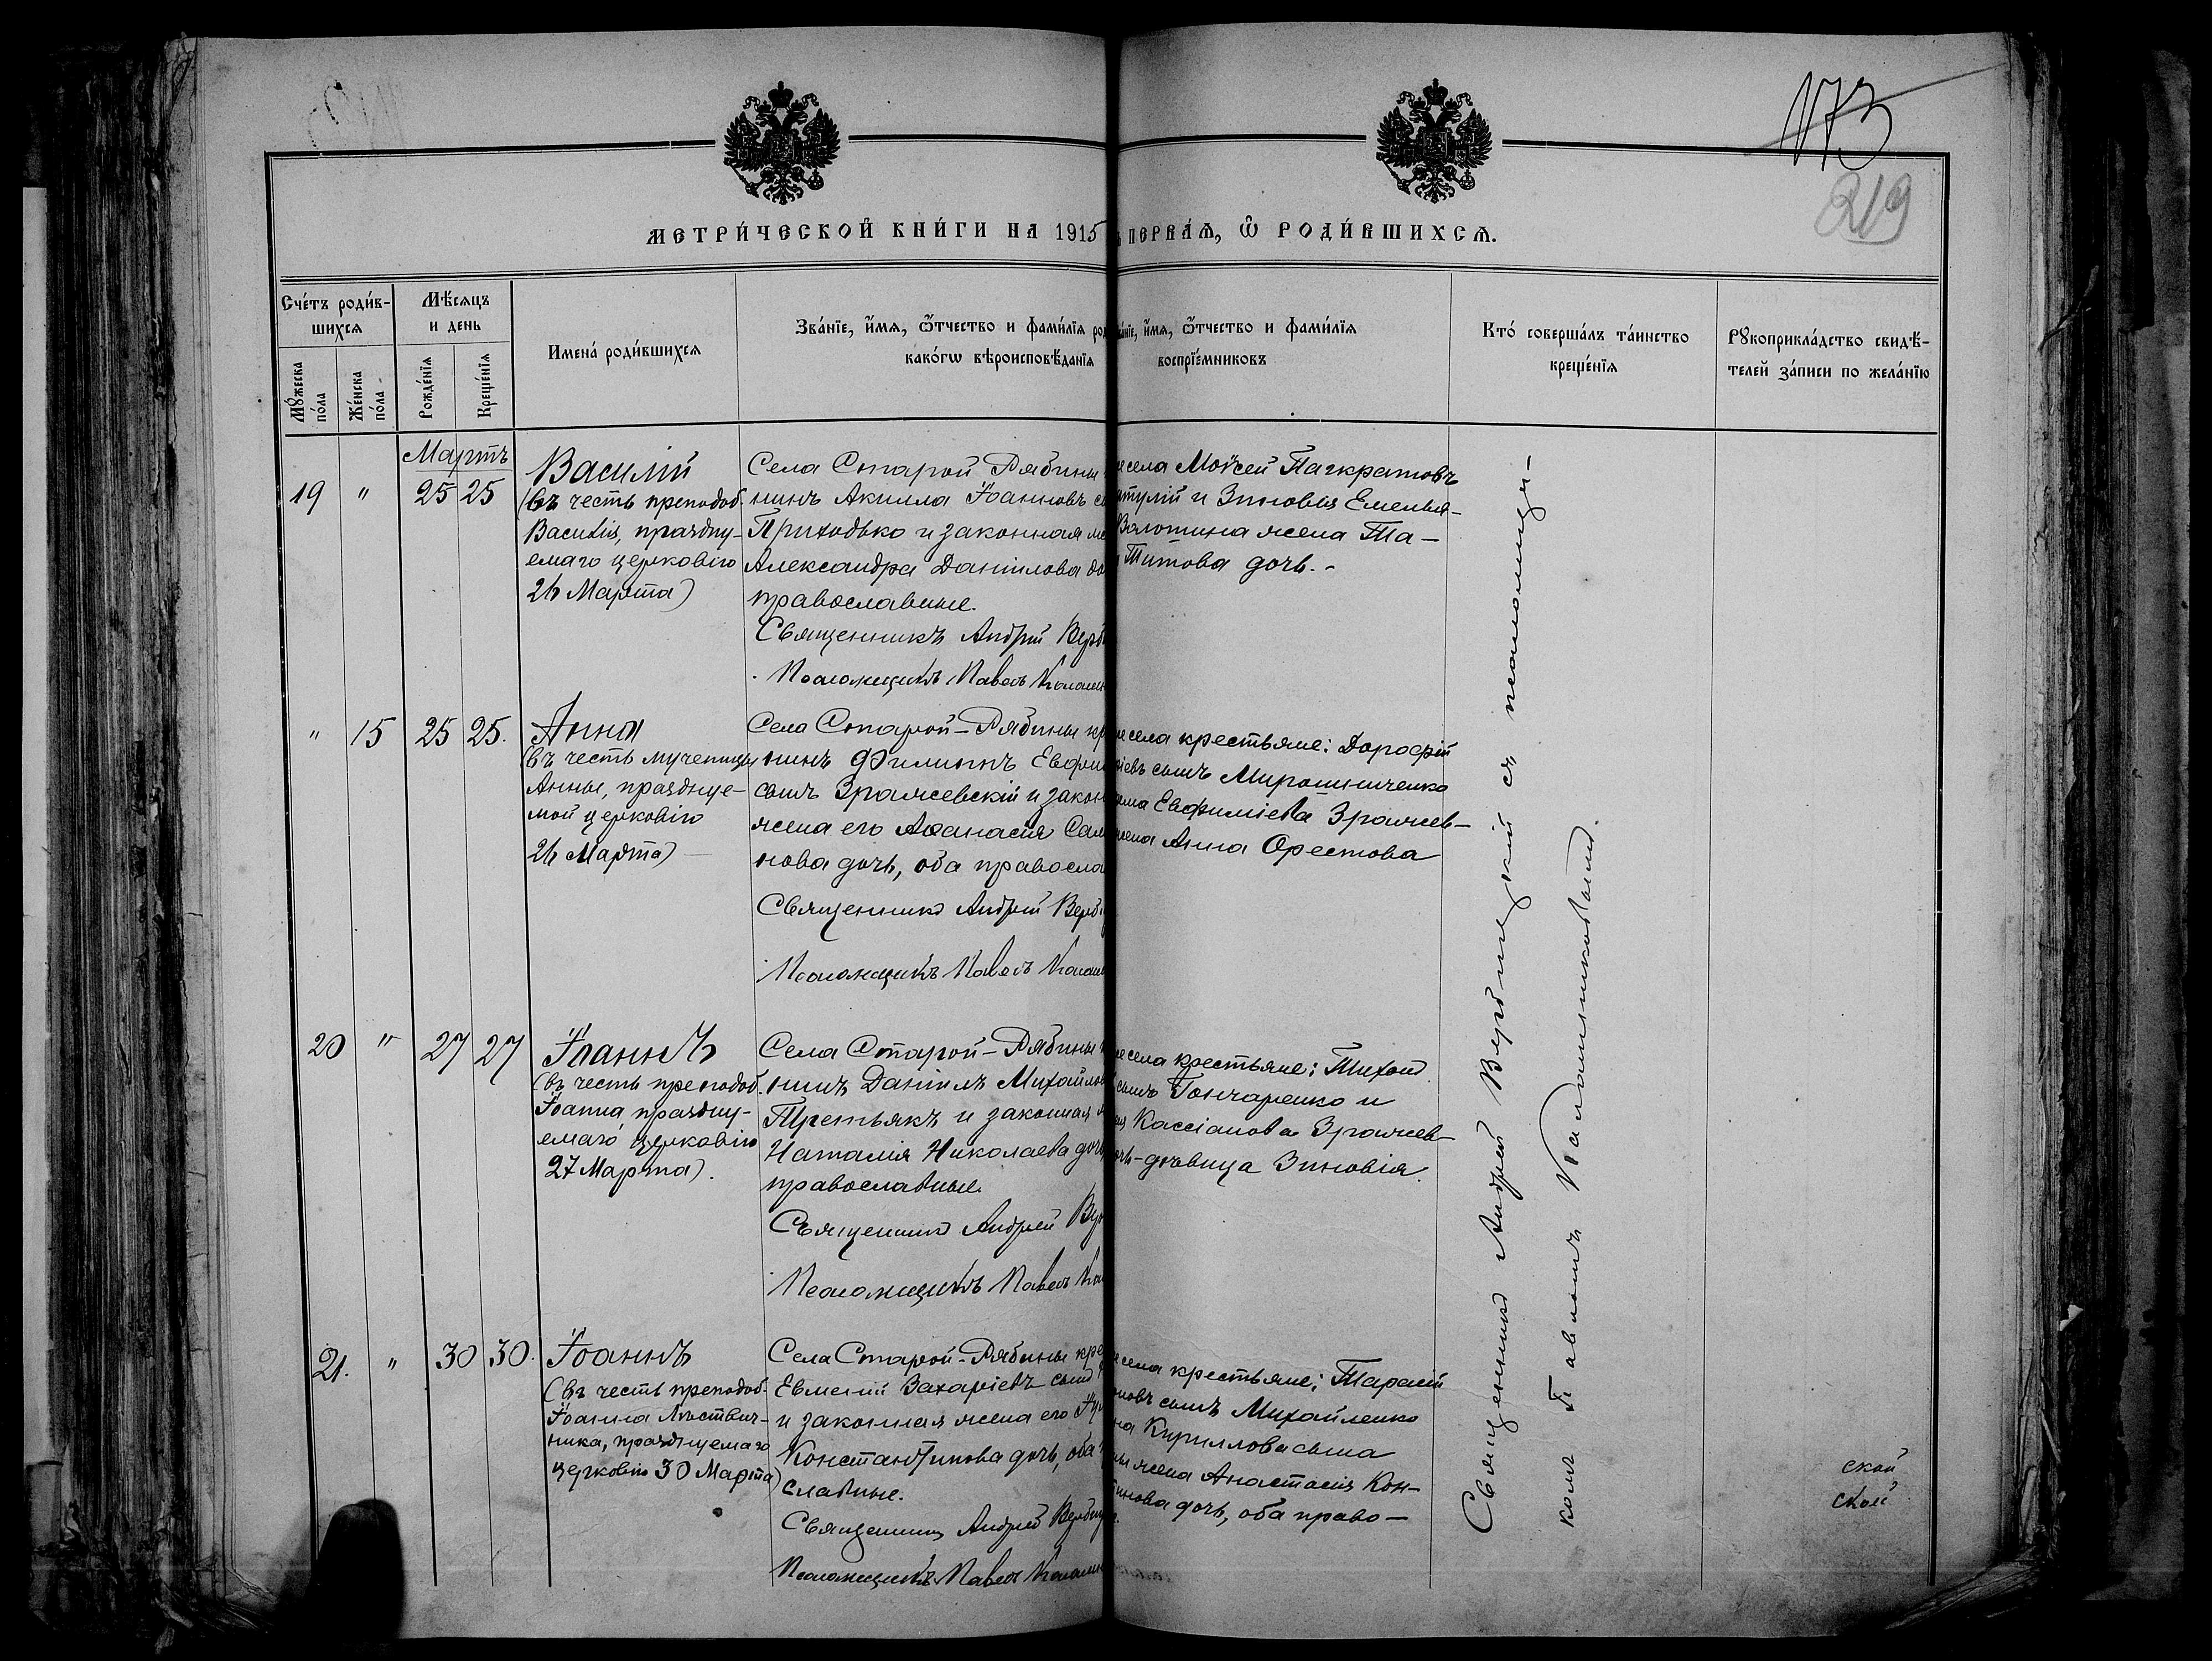 173
219
МЕТРИ́ЧЕСКОЙ КНИ́ГИ НА 1915
ПЕРВА́Ѧ, Ѡ РОДИ́ВШИХСѦ.
Сче́тъ роди́в-
шихсѧ
Му́жеска
по́ла
Же́нска
по́ла
Мѣ́сяцъ
и день
Рожде́нїѧ
Креще́нїѧ
Имена́ роди́вшихсѧ
Зва́нїе, и́мѧ, ѻ́тчество и фами́лїѧ
како́гѡ вѣроисповѣ́данїѧ
и́мѧ, ѻ́тчество и фами́лїѧ
воспрїе́мниковъ
Кто́ соверша́лъ та́инство
креще́нїѧ
Рꙋкоприкла́дство свидѣ́-
телей за́писи по жела́нїю
Мартъ
19 " 25 25
Василій
(въ честь преподоб.
Василія, праздну-
емаго церковію
26 Марта)
Села Старой Рябины
нинъ Акилла Іоанновъ
Приходько и законная
Александра Даніилова
православные.
Священникъ Андрей
Псаломщикъ Павелъ
села Моѵсей Панкратовъ
и Зиновія Емелья-
жена Та-
Титова дочь.
" 15 25 25.
Анна
(въ честь мученицы
Анны, праздную-
мой церковію
26 Марта)
Села Старой-Рябины
нинъ Филиппъ
сынъ Зражевскій и
жена его Аѳанасія
нова дочь, оба
Священникъ Андрей
Псаломщикъ Павелъ
села крестьяне: Дороѳей
сынъ Мирошниченко
Евфиміева Зражев-
жена Анна Орестова
20 " 27 27
Іоаннъ
(въ честь преподоб.
Іоанна праздну-
емаго церковію
27 Марта).
Села Старой-Рябины
нинъ Даніилъ
Третьякъ и законная
Наталія Николаева
православные.
Священникъ Андрей
Псаломщикъ Павелъ
села крестьяне: Тихонъ
сынъ Гончаренко и
Кассіанова Зражев-
дѣвица Зиновія.
21. " 30 30.
Іоаннъ
(въ честь преподоб.
Іоанна Лѣствич-
ника, празднуемаго
церковію 30 Марта)
Села Старой-Рябины
Евмений Захаріевъ сынъ
и законная жена его
Константинова дочь, оба
славные.
Священникъ Андрей
Псаломщикъ Павелъ
села крестьяне; Тарасій
сынъ Михайленко
Кириллова сына
жена Анастасія Кон-
дочь, оба право-
Священникъ Андрей Вербицкій съ псаломщи-
комъ Павломъ Калашниковымъ.
ской
ской